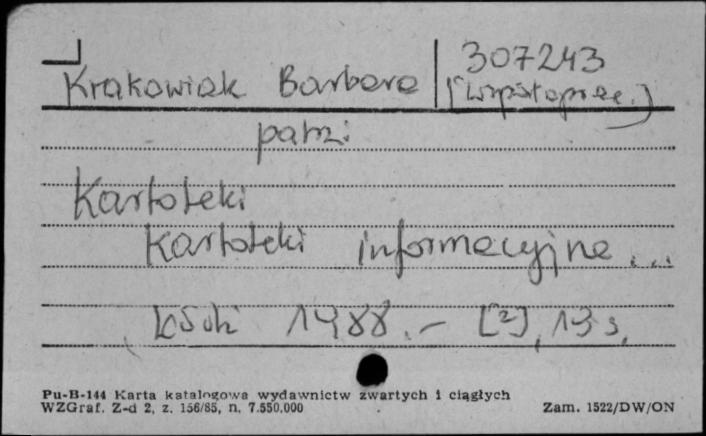 Krakowiak Barbara 307243
(współoprac.)
patrz:
Kartoteki
Kartoteki informacyjne...
1988. - [2], 19 s.
Pu-B-144 Karta katalogowa wydawnictw zwartych i ciągłych
WZGraf. Z-d 2, z. 156/85, n. 7.550.000 Zam. 1522/DW/ON